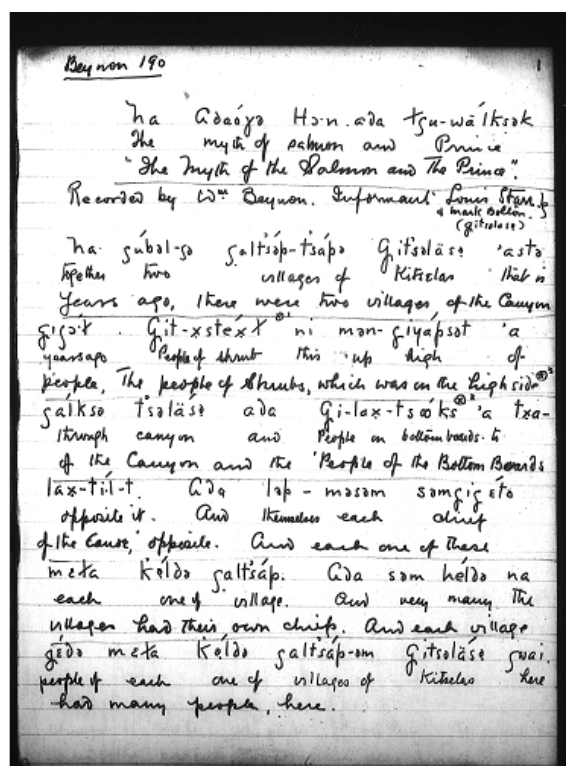 Beynon 190
1
na adaógə Hɔ·n ada łgu-wálksək
The myth of salmon and Prince
"The Myth of the Salmon and The Prince".
Recorded by Wm Beynon. Informant Louis Starr
& Mark Bolton.
(gitselase)
na gúbəl-gə galtsəp-tsápə Gitsəläsɛ 'astə
together two villages of Kitselas that is
Years ago, there were two villages of the Canyon
Git-xstéxt ni mən-giyápsət 'a
years ago People of shrub this up high of
people, The people of Shrubs, which was on the high side
gálksə tsəläsə ada Gi-lax-tsəks 'a txa-
through canyon and People on bottom boards to
of the Canyon and the People of the Bottom Boards
lax-ti·l-t. Ada ləp-məsəm səmgigɛtə
opposite it. And themselves each chief
of the Canoe,' opposite. And each one of these
mɛta kéldə galtsáp. Ada səm héldə na
each one of village. And very many The
villages had their own chiefs. And each village
gédə mɛta kéldə galtsáp-əm Gitsəläsɛ gwai.
people of each one of villages of Kitselas here
had many people, here.